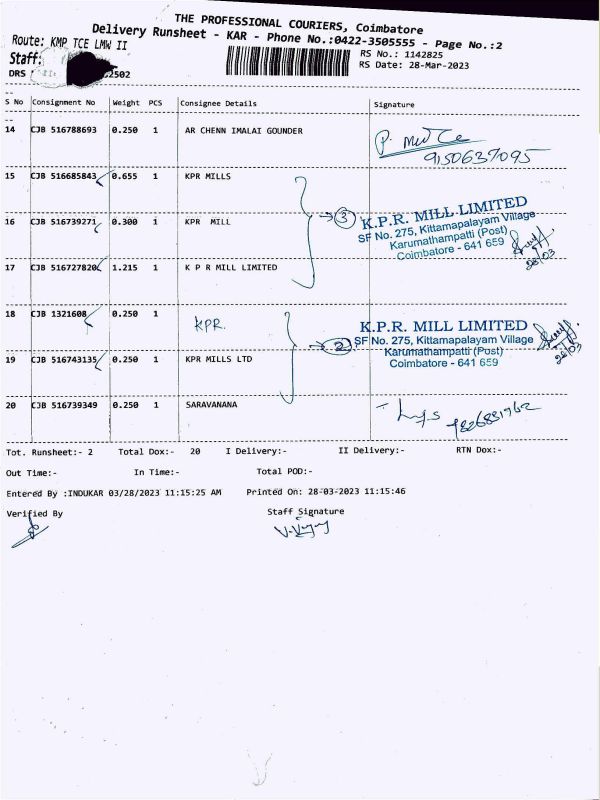 THE PROFESSIONAL COURIERS, Coimbatore
Delivery Runsheet - KAR - Phone No.:0422-3505555 - Page No.:2
Route: KMP TCE LMW II
RS No.: 1142825
Staff:
RS Date: 28-Mar-2023
DRS 2502
S No Consignment No Weight PCS Consignee Details Signature
14 CJB 516788693 0.250 1 AR CHENN IMALAI GOUNDER
9150637095
15 CJB 516685843 0.655 1 KPR MILLS
3 K.P.R. MILL LIMITED
SF No. 275, Kittamapalayam Village
16 CJB 516739271 0.300 1 KPR MILL
Karumathampatti (Post)
Coimbatore - 641 659
28/03
17 CJB 516727820 1.215 1 K P R MILL LIMITED
18 CJB 1321608 0.250 1 KPR.
2 K.P.R. MILL LIMITED
SF No. 275, Kittamapalayam Village
Karumathampatti (Post)
28/03
19 CJB 516743135 0.250 1 KPR MILLS LTD
Coimbatore - 641 659
20 CJB 516739349 0.250 1 SARAVANANA
Tot. Runsheet:- 2 Total Dox:- 20 I Delivery:- II Delivery:- RTN Dox:-
Out Time:- In Time:- Total POD:-
Entered By :INDUKAR 03/28/2023 11:15:25 AM Printed On: 28-03-2023 11:15:46
Verified By Staff Signature